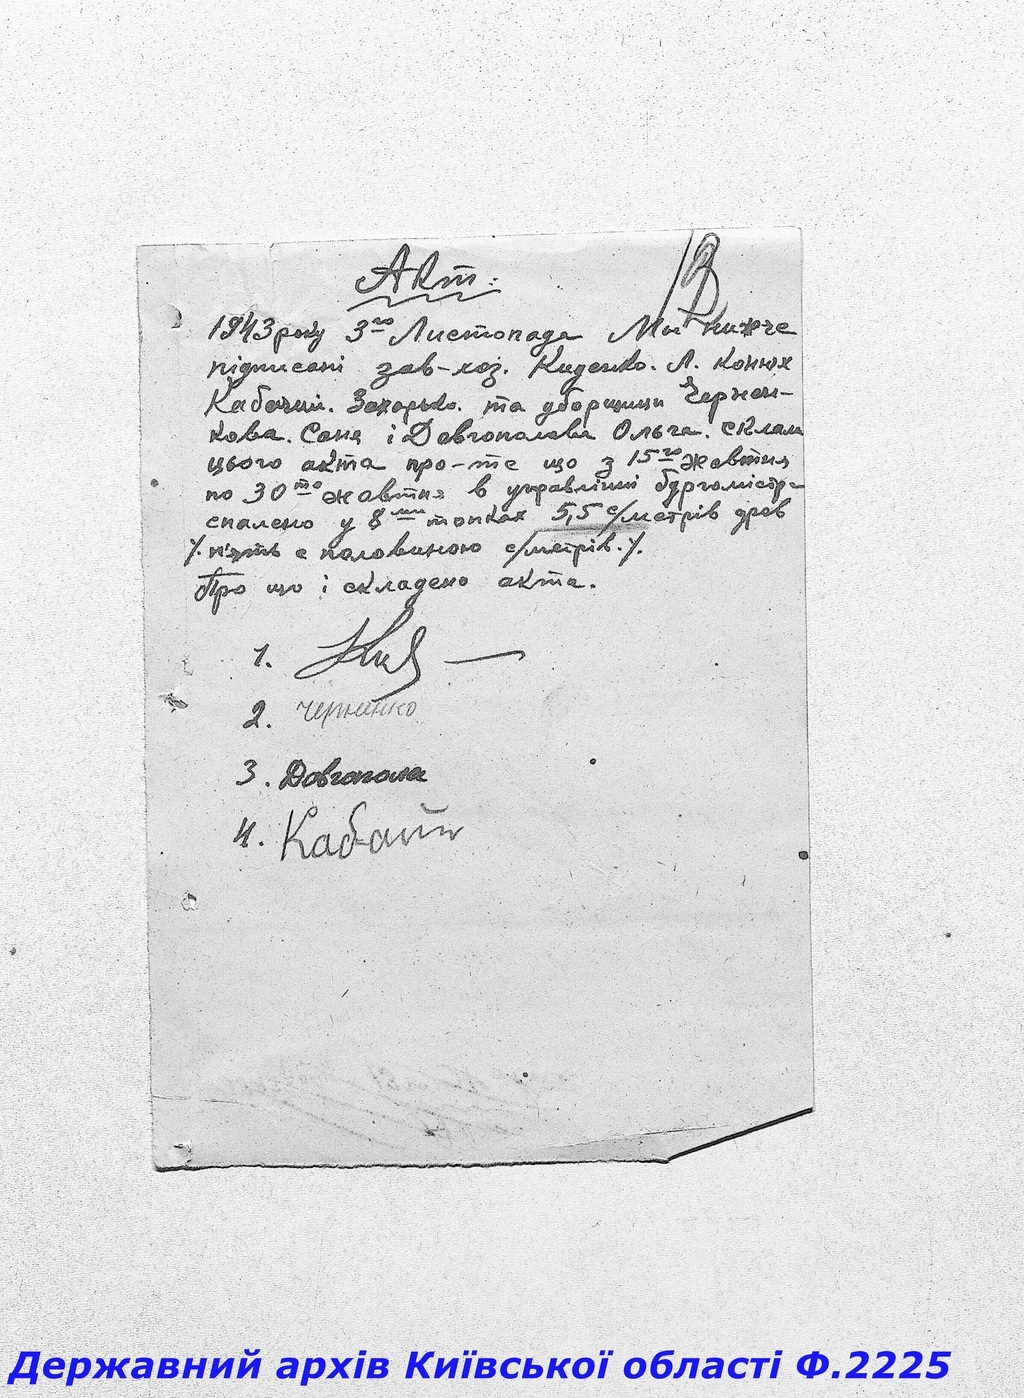 Акт:
1943 року 3го Листопада Мы нижче
підписані зав-хоз. Киденко. Л. конюх
Кабачий. Захарько. та уборщици Чернен-
кова. Саня і Довгополова Ольга. склали
цього акта про-те що з 15го жовтня
по 30то жовтня в управлінні бургомістр-
спалено у 8ми топках 5,5 с/метрів дров
/. п'ять с половиною с/метрів. /.
Про що і складено акта.
1.
2. Черненко
3. Довгопола
4.
Державний архів Київської області Ф.2225